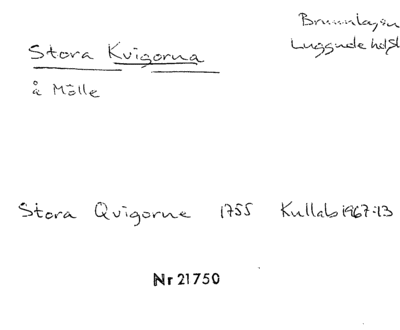 Brunnbyson
Luggude hd Sk
Stora Kvigorna
å Mölle
Stora Qvigorne 1755 Kullab 1967:13
Nr 21750